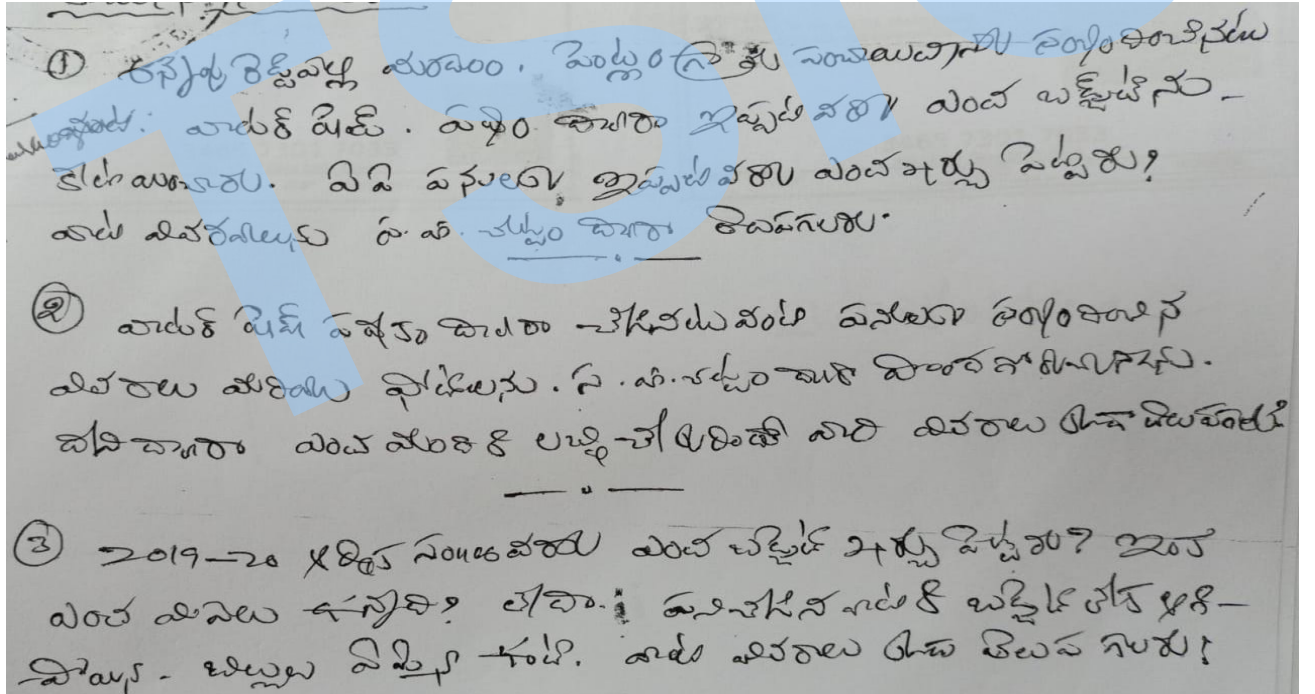 ① కన్నెపల్లి మండలం. మెట్లం గ్రామ పంచాయితీకు సంబంధించినటు
వంటి. వాటర్ షెడ్. పథకం ద్వారా ఇప్పటి వరకు ఎంత బడ్జెట్ ను
కేటాయించారు. ఏ ఏ పనులకు ఇప్పటి వరకు ఎంత ఖర్చు పెట్టారు?
వాటి వివరాలను స.హ. చట్టం ద్వారా తెలుపగలరు.
② వాటర్ షెడ్ పథకం ద్వారా చేసినటువంటి పనులకు సంబంధించిన
వివరాలు మరియు ఫోటోలను. స.హ. చట్టం ద్వారా పొందగోరుచున్నాను.
దీని ద్వారా ఎంత మందికి లబ్ధి చేకూరిందో వారి వివరాలు కూడా తెలుపగలరు
③ 2019-20 ఆర్థిక సంబంధించి వరకు ఎంత బడ్జెట్ ఖర్చు పెట్టారు? ఇంకా
ఎంత మిగులు ఉన్నది? లేదా. పనిచేసిన వాటికి బడ్జెట్ లేక ఆగి-
పోయిన. బిల్లులు ఏమైన ఉంటే. వాటి వివరాలు కూడా తెలుప గలరు?
TSIC